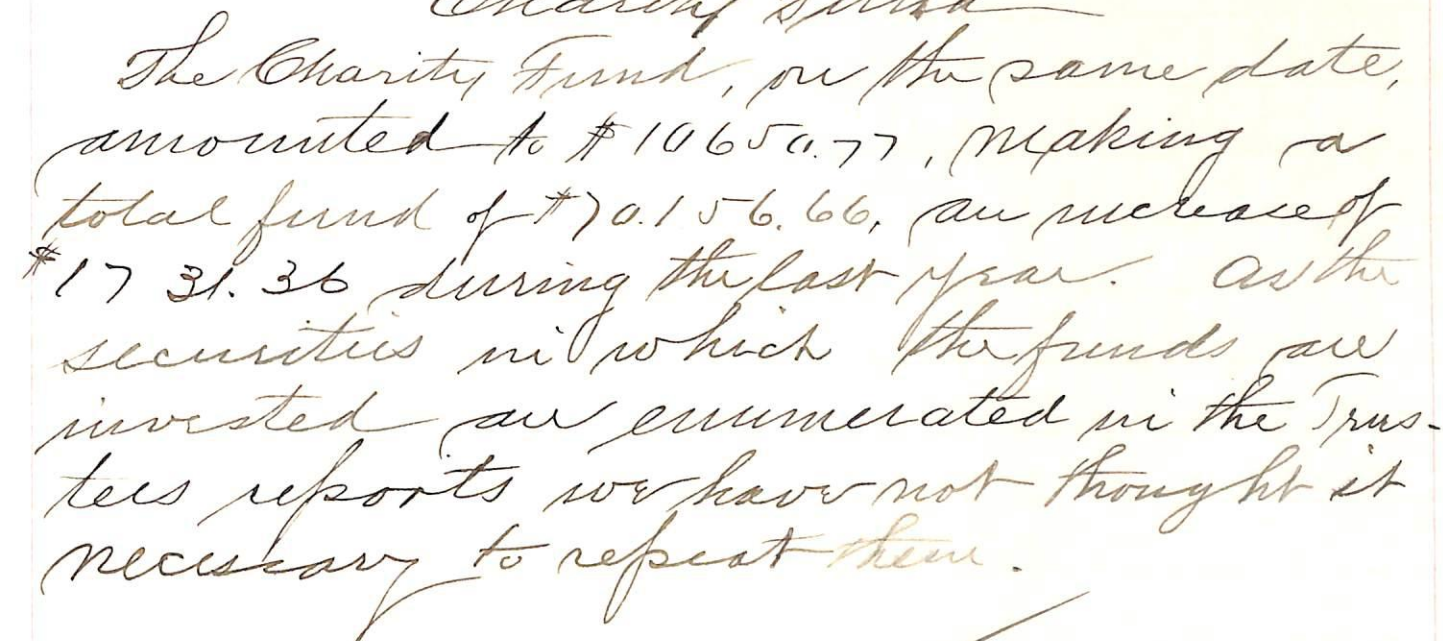 Charity Fund
The Charity Fund, on the same date,
amounted to $10650.77, making a
total fund of $70.156.66, an increase of
$1731.36 during the last year. As the
securities in which the funds are
invested are enumerated in the Trus-
tees reports we have not thought it
necessary to repeat them.